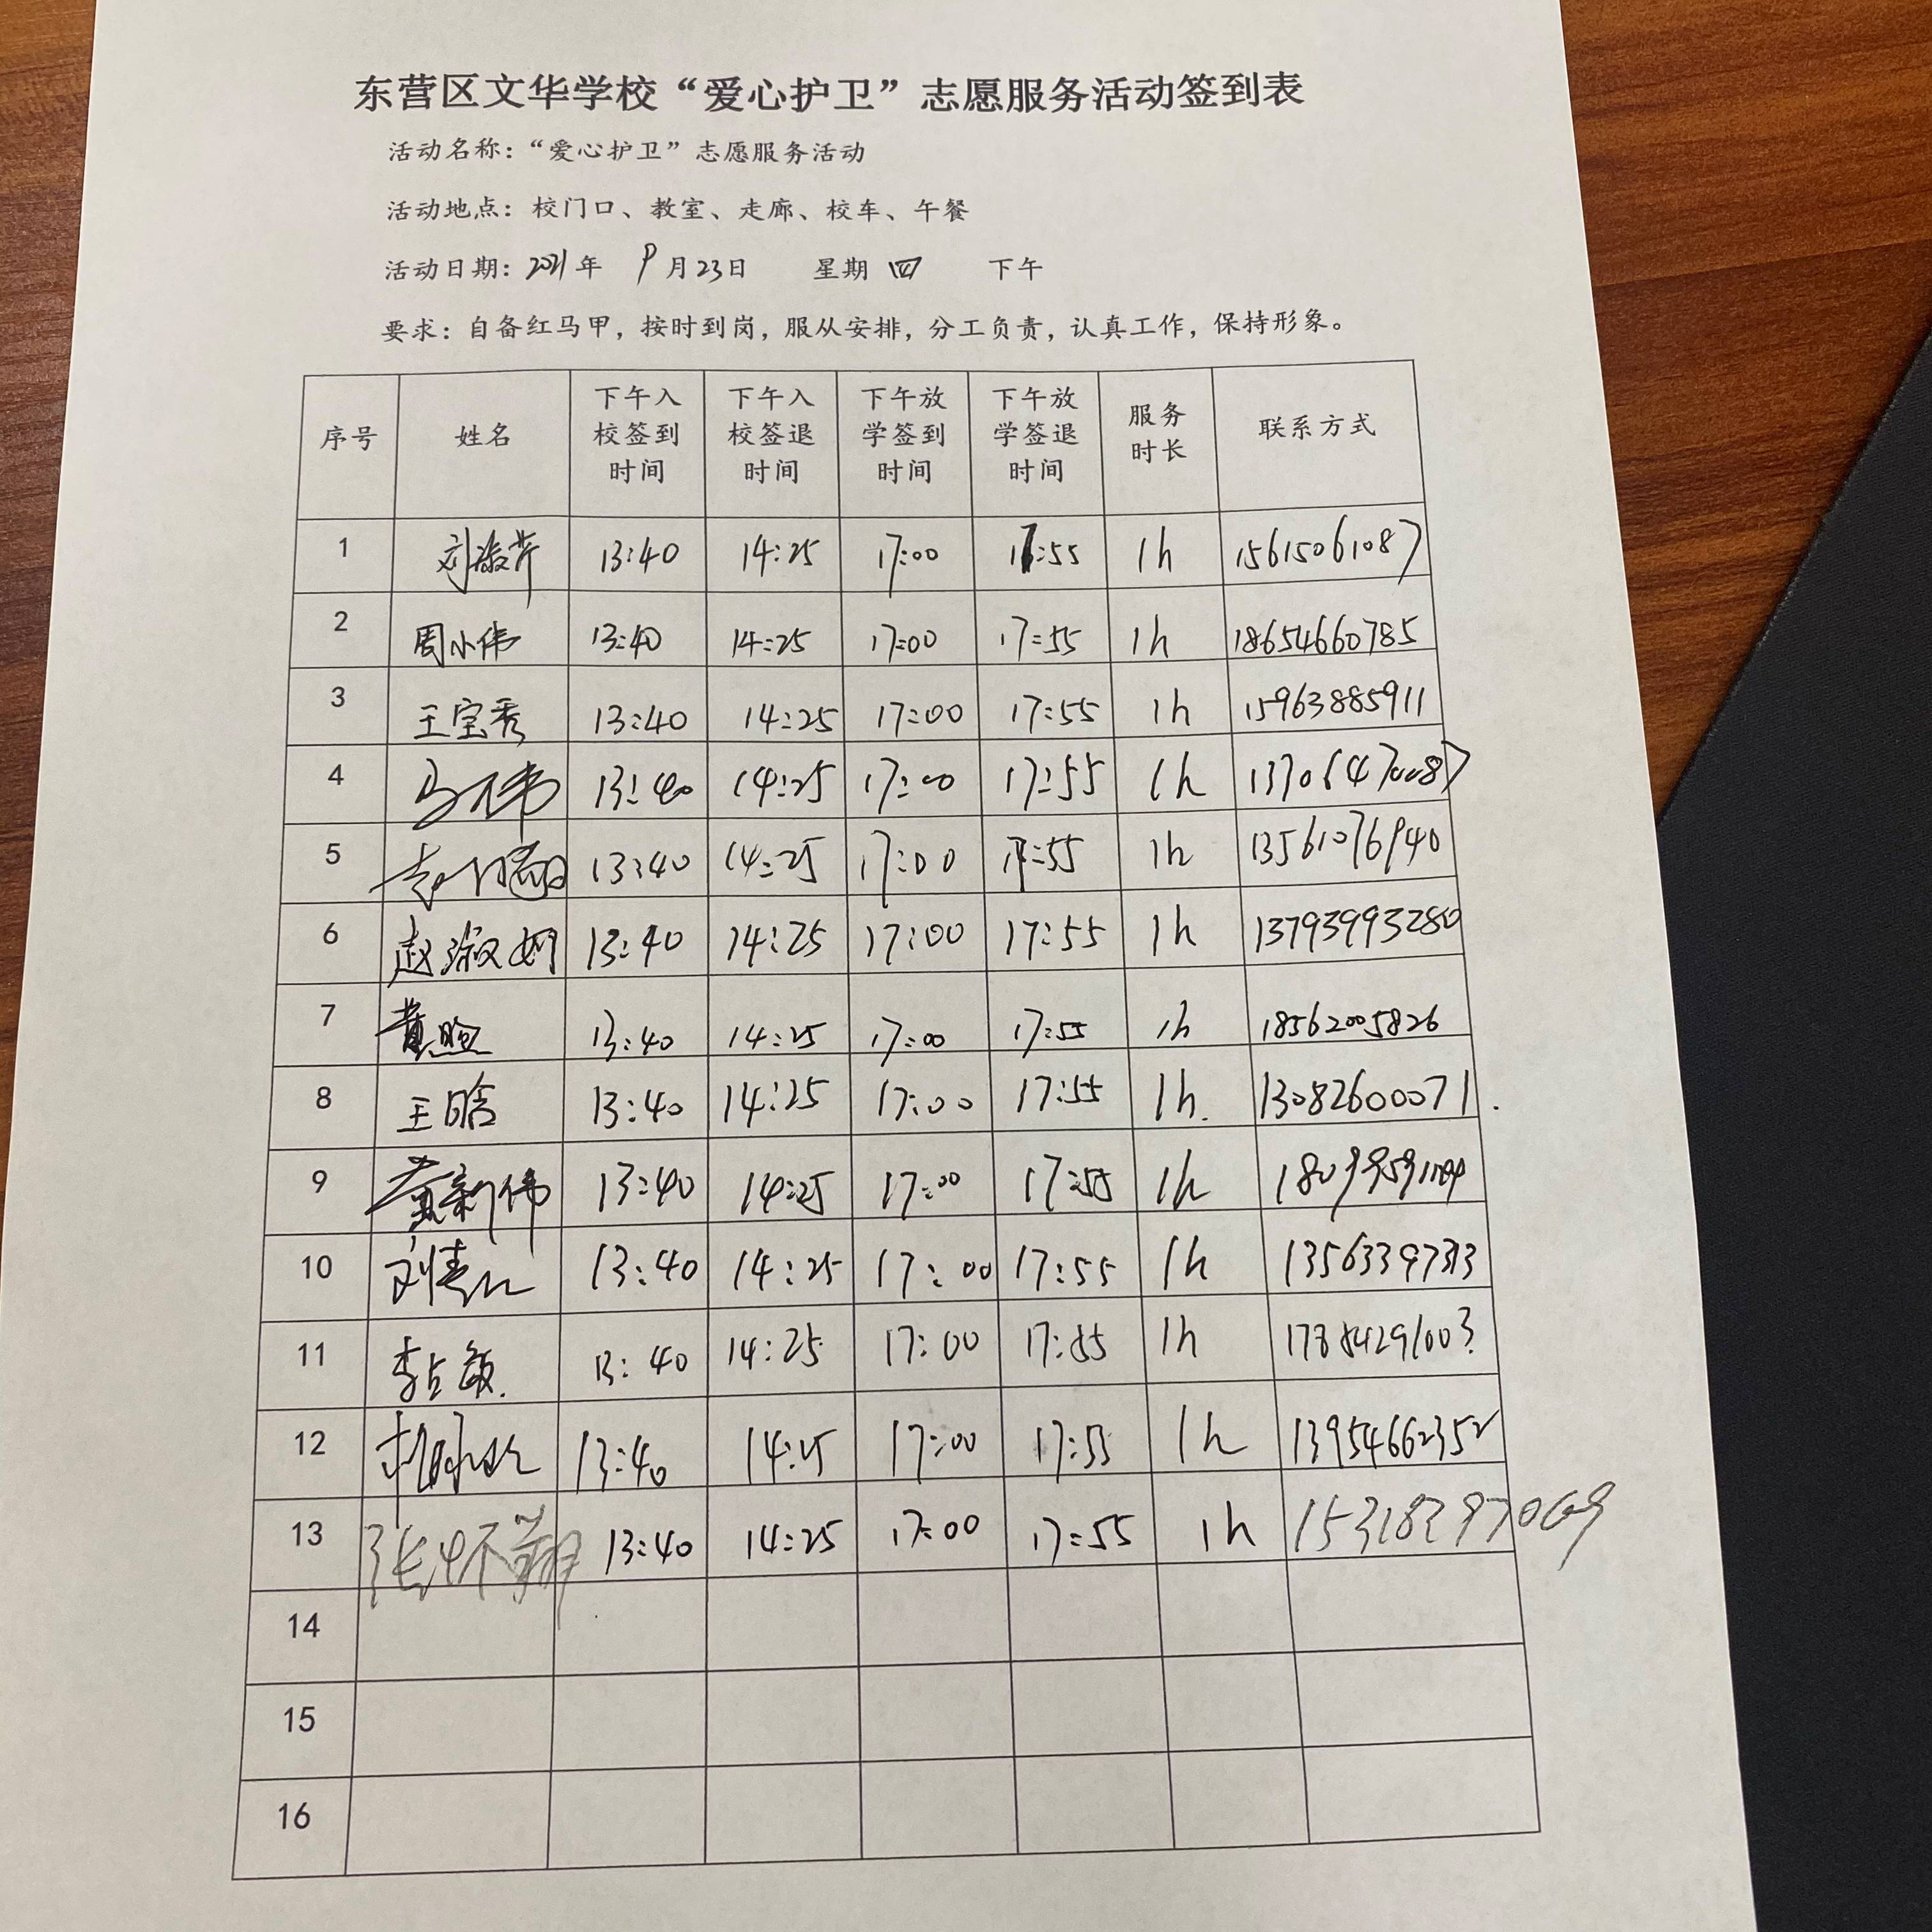 东营区文华学校“爱心护卫”志愿服务活动签到表
活动名称：“爱心护卫”志愿服务活动
活动地点：校门口、教室、走廊、校车、午餐
活动日期：2021年 9月23日 星期四 下午
要求：自备红马甲，按时到岗，服从安排，分工负责，认真工作，保持形象。
序号 姓名 下午入校签到时间 下午入校签退时间 下午放学签到时间 下午放学签退时间 服务时长 联系方式
1 13:40 14:25 17:00 17:55 1h 15615061087
2 周小伟 13:40 14:25 17:00 17:55 1h 18654660785
3 王宝秀 13:40 14:25 17:00 17:55 1h 15963885911
4 马伟 13:40 14:25 17:00 17:55 1h 13706470087
5 13:40 14:25 17:00 17:55 1h 13561076940
6 赵淑娟 13:40 14:25 17:00 17:55 1h 13793993280
7 13:40 14:25 17:00 17:55 1h 18562005826
8 王晗 13:40 14:25 17:00 17:55 1h. 13082600071.
9 黄新伟 13:40 14:25 17:00 17:55 1h
10 13:40 14:25 17:00 17:55 1h
11 李占敏. 13:40 14:25 17:00 17:55 1h
12 13:40 14:25 17:00 17:55 1h 13954662352
13 张怀翔 13:40 14:25 17:00 17:55 1h
14
15
16